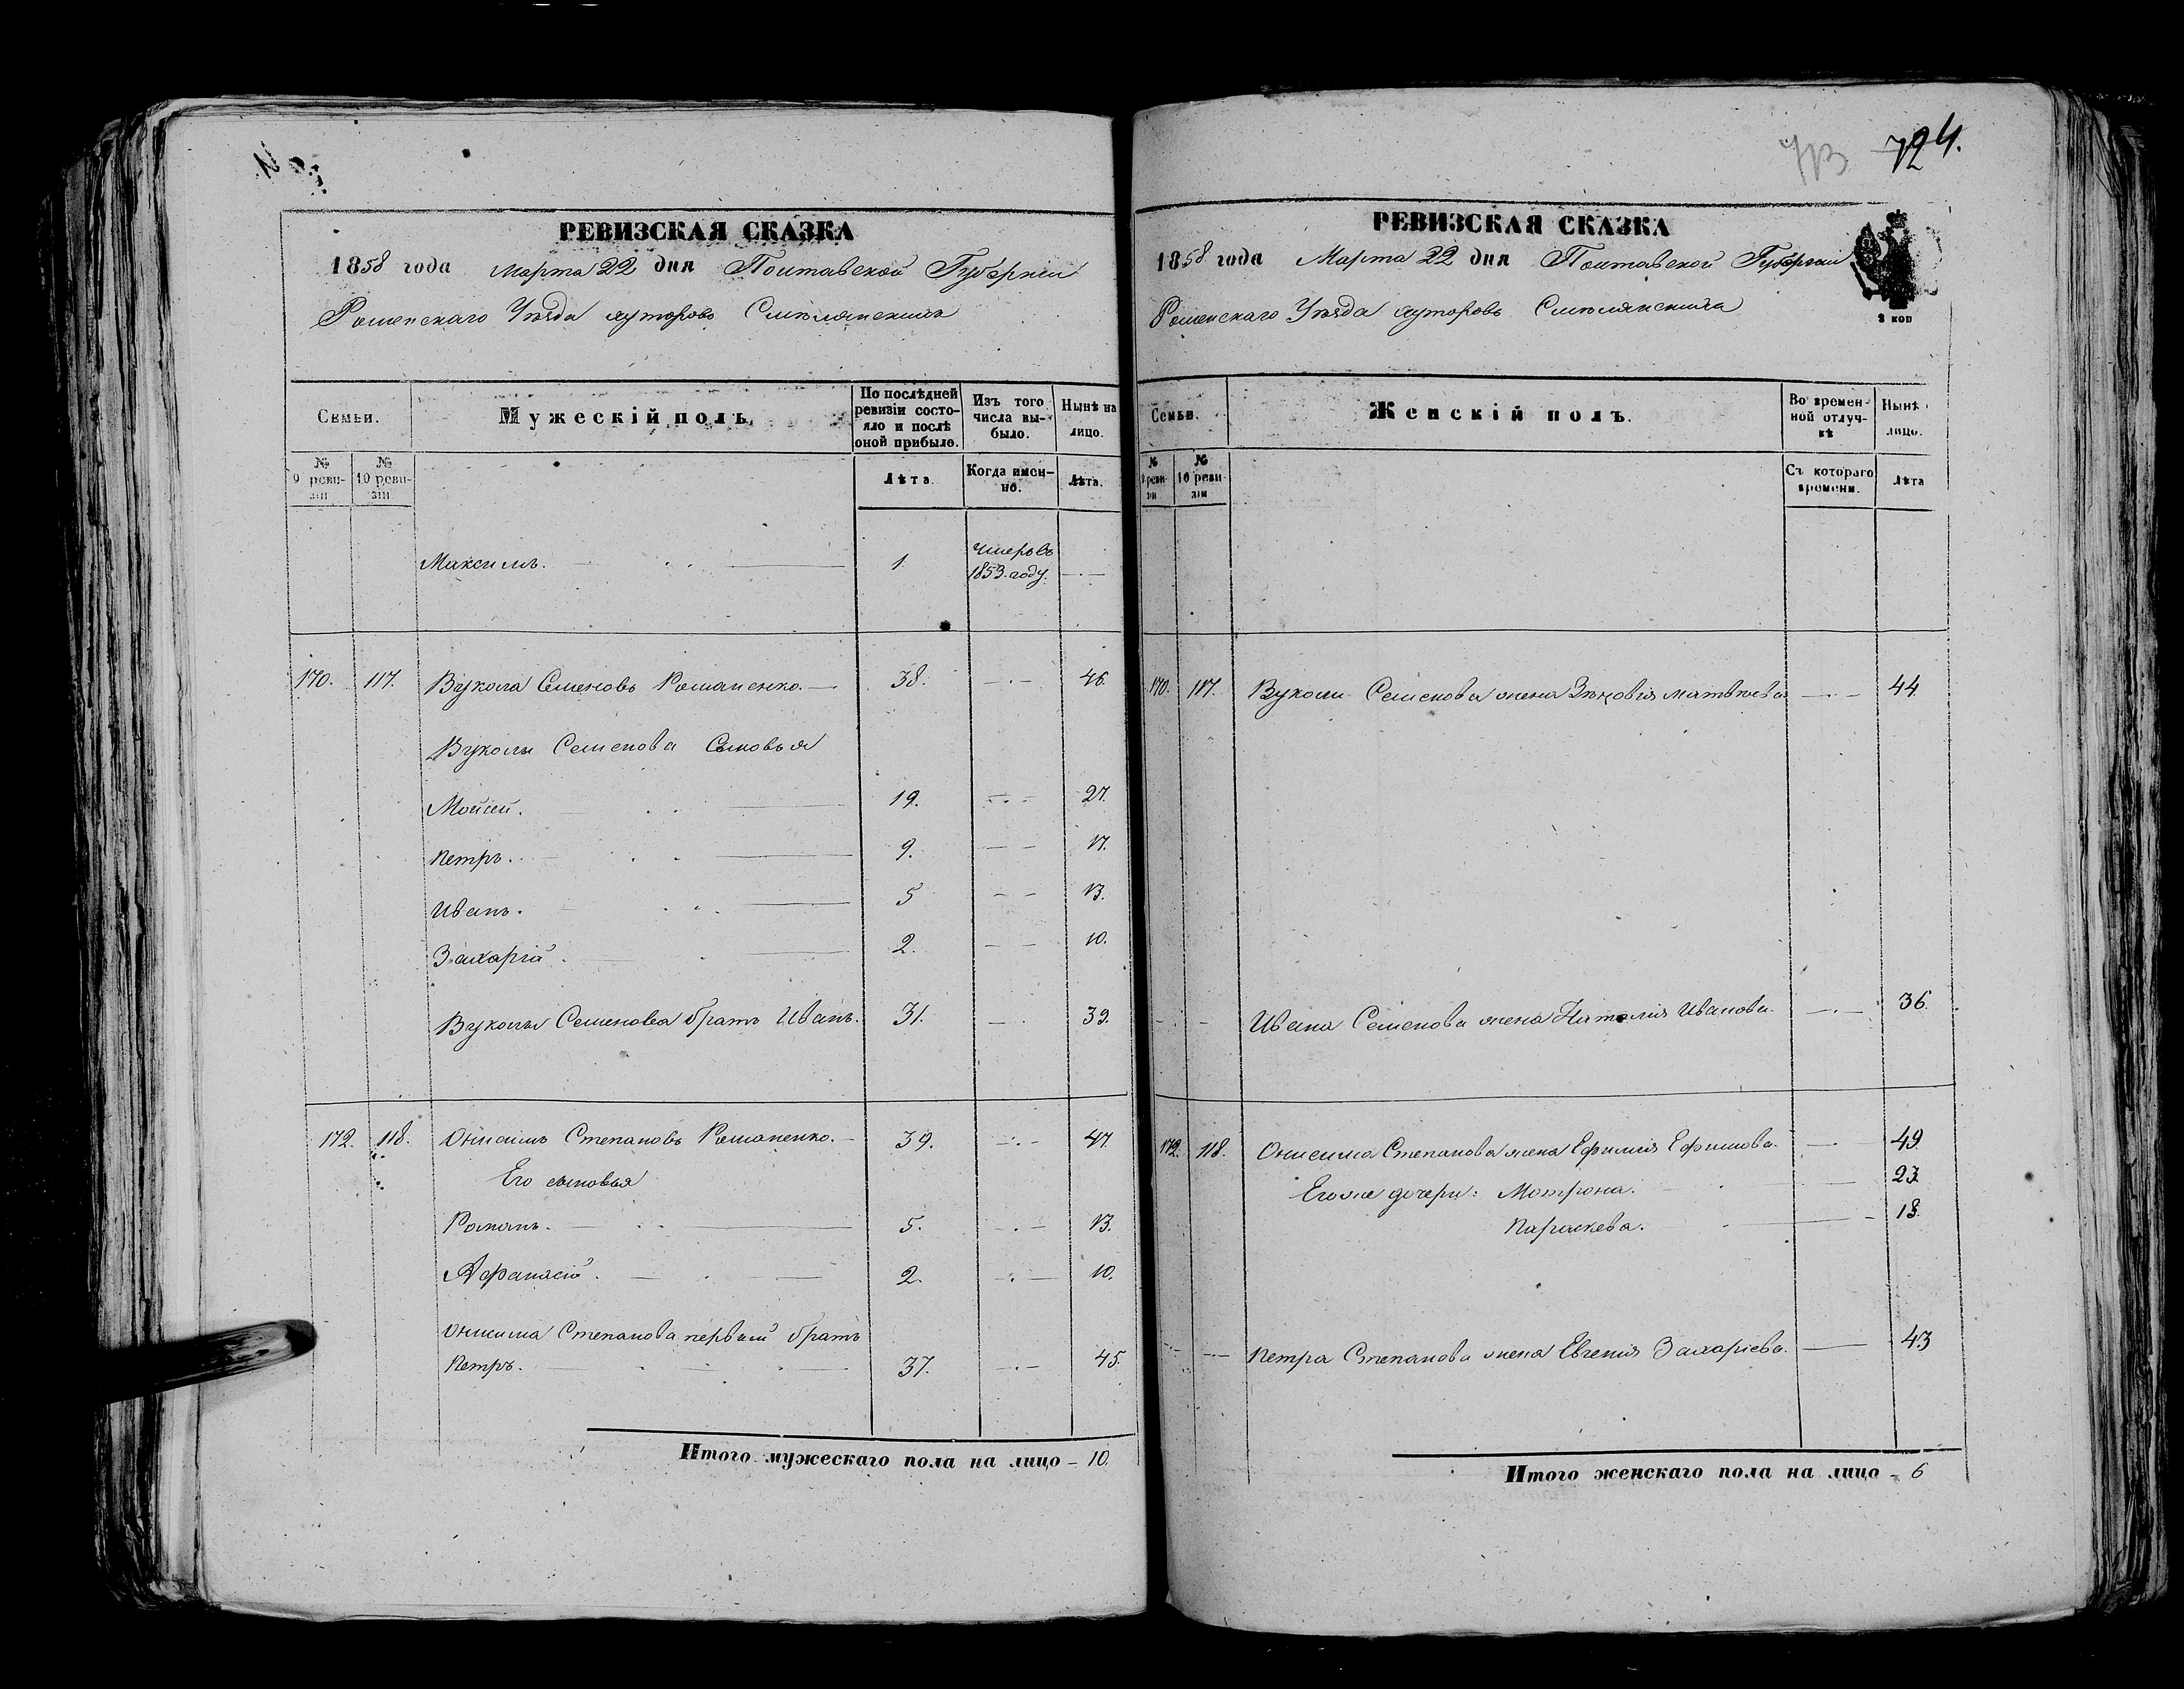 РЕВИЗСКАЯ СКАЗКА
1858 года Марта 22 дня Полтавской Губерніи
Роменскаго Уѣзда хуторовъ Смѣлянскихъ
Семьи.
Мужескій полъ.
По послѣдней ревизіи состояло и послѣ оной прибыло.
Изъ того числа выбыло.
Нынѣ на лицо.
№ 9 ревизіи
№ 10 ревизіи
Лѣта.
Когда именно.
Лѣта.
Максимъ. 1 умеръ въ 1853 году.
170. 117. Вукола Семеновъ Романенко. 38. 46.
Вуколы Семенова Сыновья
Мойсей. 19. 27.
Петръ. 9. 17.
Иванъ. 5 13.
Захарій. 2. 10.
Вуколы Семенова братъ Иванъ. 31. 39.
172. 118. Онисимъ Степановъ Романенко. 39. 47.
Его сыновья
Романъ. 5. 13.
Афанасій. 2. 10.
Онисима Степанова первый братъ
Петръ. 37. 45.
Итого мужескаго пола на лицо - 10.
724.
РЕВИЗСКАЯ СКАЗКА
1858 года Марта 22 дня Полтавской Губерніи
Роменскаго Уѣзда хуторовъ Смѣлянскихъ
2 коп
Семьи.
Женскій полъ.
Во временной отлучкѣ
Нынѣ лицо.
№ 9 ревизіи
№ 10 ревизіи
Съ котораго времени.
Лѣта
170. 117. Вуколы Семенова жена Матвѣева 44.
Ивана Семенова жена Наталія Иванова. 36.
172. 118. Онисима Степанова жена Ефимія Ефимова. 49.
Его же дочери: Мотрона. 23.
Параскева. 18.
Петра Степанова жена Евгенія Захаріева. 43
Итого женскаго пола на лицо - 6